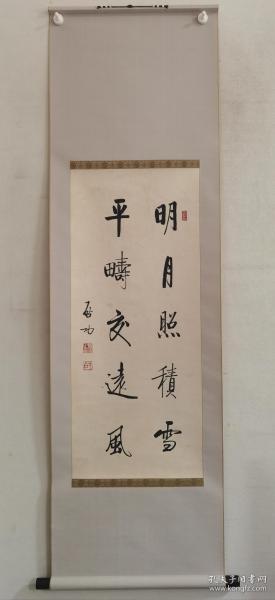 明月照積雪
平疇交遠風
启功
孔夫子旧书网
www.kongfz.com